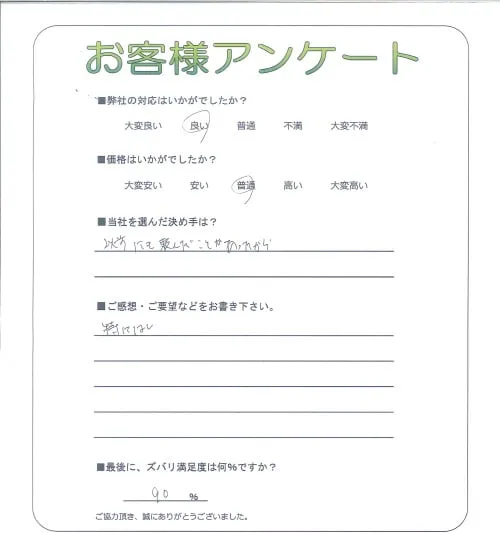 お客様アンケート
■弊社の対応はいかがでしたか？
大変良い 良い 普通 不満 大変不満
■価格はいかがでしたか？
大変安い 安い 普通 高い 大変高い
■当社を選んだ決め手は？
以前にも頼んだことがあったから
■ご感想・ご要望などをお書き下さい。
特になし
■最後に、ズバリ満足度は何%ですか？
90 %
ご協力頂き、誠にありがとうございました。